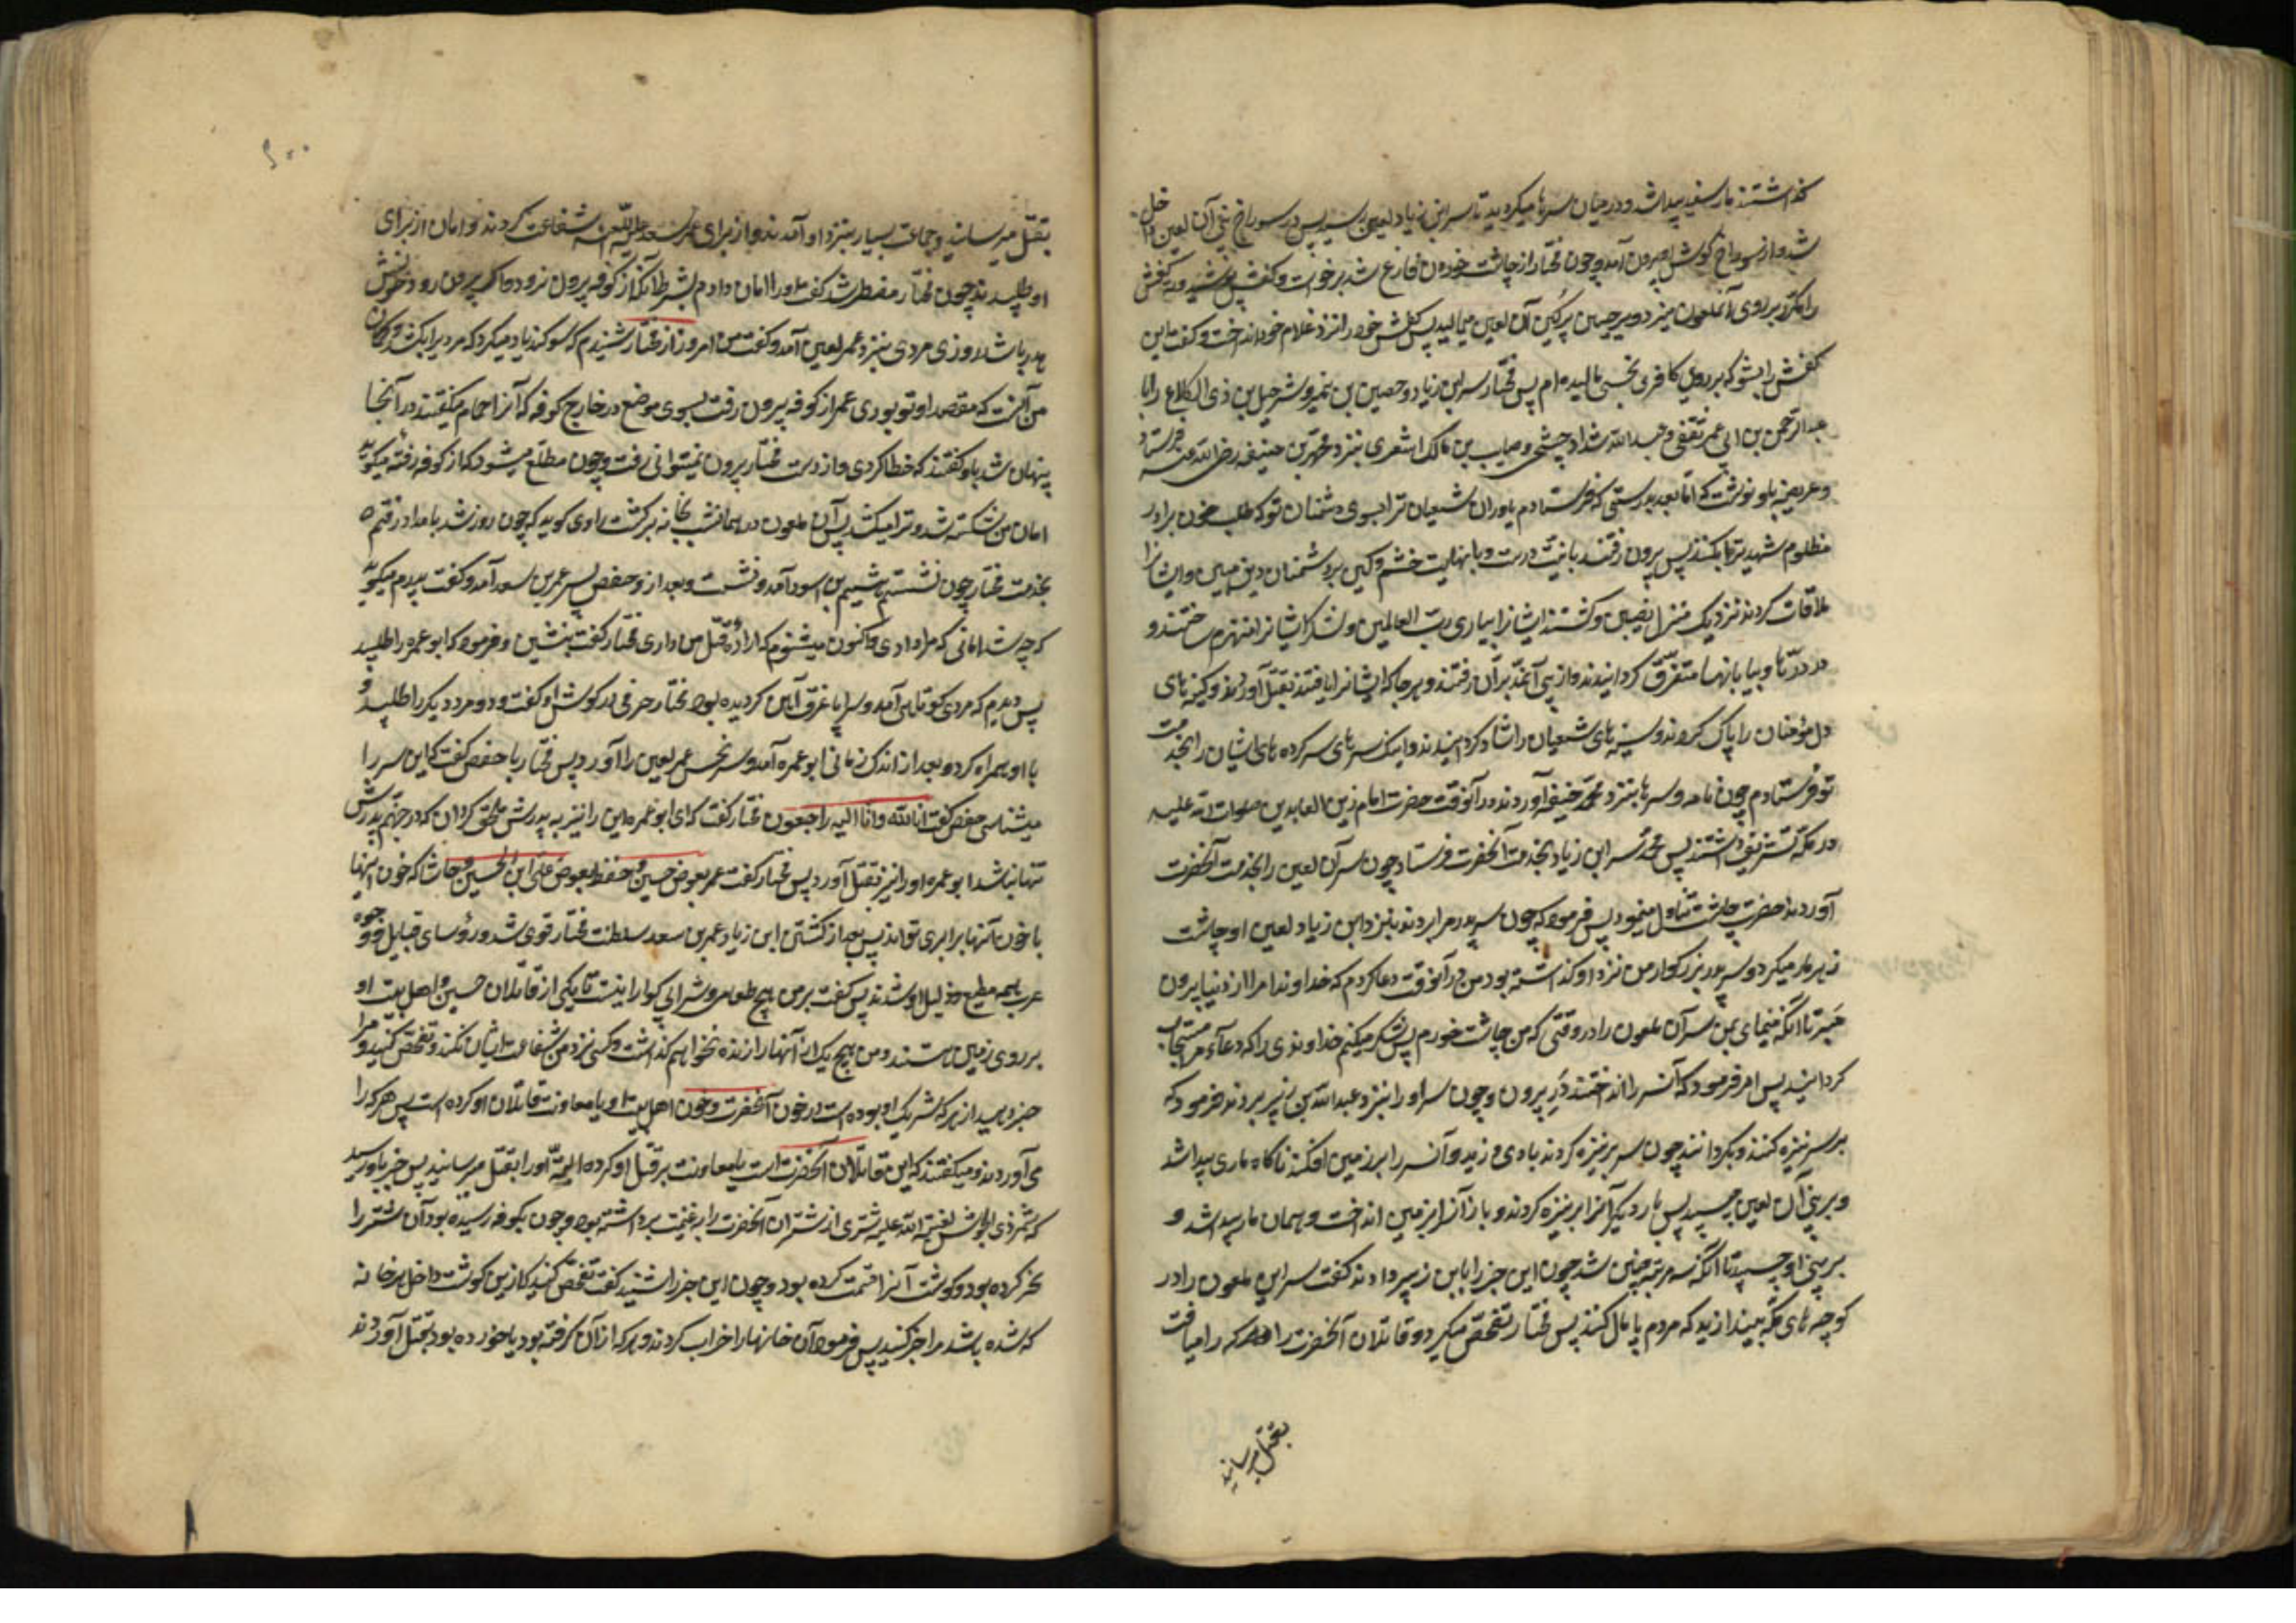 گذاشتند مار سفید پیدا شد و در میان سرها میگردید تا بسر ابن زیاد لعین رسید پس در سوراخ بینی آن لعین داخل
شد و از سوراخ گوش او بیرون آمد و چون مختار از چاشت خوردن فارغ شد برخواست و کفش پوشید و ته کفش
را مکرر بر روی آنملعون میزد و بر جبین پرکین آن لعین میمالید پس کفش خود را نزد غلام خود انداخت و گفت این
کفش را بشو که بر روی کافر نجسی مالیده ام پس مختار سر ابن زیاد و حصین بن نمیر و شرحیل بن ذی الکلاع را با
عبد الرحمن بن ابی عمر ثقفی و عبد الله شداد چشمی و صایب بن مالک اشعری بنزد محمد بن حنیفه رضی الله عنه فرستاد
و عریضه باو نوشت که اما بعد بدرستی که فرستادم یاوران شیعیان ترا بسوی دشمنان تو که طلب خون برادر
مظلوم شهید ترا بکنند پس بیرون رفتند با نیت درست و با نهایت خشم و کین بر دشمنان دین مبین و ایشانرا
ملاقات کردند نزدیک منزل نصیبین و کشتند ایشانرا بیاری رب العالمین و لشکر ایشانرا منهزم ساختند و
در دریاها و بیابانها متفرق گردانیدند و از پی آنمدبران رفتند و هر جا که ایشانرا یافتند بقتل آوردند و کینه های
دل مؤمنان را پاک کردند و سینه های شیعیان را شاد گردانیدند و اینک سرهای سرکرده های ایشان را بخدمت
تو فرستادم چون نامه و سرها بنزد محمد حنیفه آوردند در آنوقت حضرت امام زین العابدین صلوات الله علیه
در مکه تشریف داشتند پس محمد سر ابن زیاد بخدمت آنحضرت فرستاد چون سر آن لعین را بخدمت آنحضرت
آوردند حضرت چاشت تناول مینمود پس فرمود که چون سر پدرم را بردند بنزد ابن زیاد لعین او چاشت
زهر مار میکرد و سر پدر بزرگوار من نزد او گذاشته بود من در آنوقت دعا کردم که خداوندا مرا از دنیا بیرون
مبر تا آنکه بنمای بمن سر آن ملعون را در وقتی که من چاشت خورم پس شکر میکنم خداوندی را که دعاء مرا مستجاب
گردانید پس امر فرمود که آنسر را انداختند بیرون و چون سر او را بنزد عبد الله بن زبیر بردند فرمود که
بر سر نیزه کنند و بگردانند چون سر بر نیزه کردند بادی وزید و آنسر را بر زمین افکند ناگاه ماری پیدا شد
و بر بینی آن لعین چسپید پس بار دیگر آنرا بر نیزه کردند و باز آنرا بر زمین انداخت و همان مار پیدا شد و
بر بینی او چسپید تا آنکه سه مرتبه چنین شد چون این خبر را بابن زبیر دادند گفت سر این ملعون را در
کوچه های مکه بیندازید که مردم پامال کنند پس مختار تفحص میکرد و قاتلان آنحضرت را و هر که را میافت
بقتل میرسانید
۶۰۰
بقتل میرسانید و جماعت بسیار بنزد او آمدند و از برای عمر سعد علیه اللعنه شفاعت کردند و امان از برای
او طلبیدند چون مختار مضطر شد گفت او را امان دادم بشرط آنکه از کوفه بیرون نرود و اگر بیرون رود خونش
هدر باشد روزی مردی بنزد عمر لعین آمد و گفت من امروز از مختار شنیدم که سوگند یاد میکرد که مردیرا بکشد و گمان
من آنست که مقصد او تو بودی عمر از کوفه بیرون رفت بسوی موضع در خارج کوفه که آنرا حمام میگفتند در آنجا
پنهان شد باو گفتند که خطا کردی و از دست مختار بیرون نمیتوانی رفت و چون مطلع میشود که از کوفه رفته میگوید
امان من شکسته شد و ترا میکشد پس آن ملعون در همان شب بخانه برگشت راوی گوید که چون روز شد بامداد رفتم
بخدمت مختار چون نشستم هیثم بن اسود آمد و نشست و بعد از او حفص پسر عمر بن سعد آمد و گفت پدرم میگوید
که چه شد امانی که مرا دادی و اکنون میشنوم که اراده قتل من داری مختار گفت بنشین و فرمود که ابو عمره را طلبید
پس دیدم که مردی کوتاهی آمد و سراپا غرق آهن گردیده بود مختار حرفی در گوش او گفت و دو مرد دیگر را طلبید و
با او همراه کرد و بعد از اندک زمانی ابو عمره آمد و سر نجس عمر لعین را آورد پس مختار با حفص گفت که این سر را
میشناسی حفص گفت انا لله و انا الیه راجعون مختار گفت که ای ابو عمره این را نیز به پدرش ملحق گردان که در جهنم پدرش
تنها نباشد ابو عمره او را نیز بقتل آورد پس مختار گفت عمر بعوض حسین و حفص بعوض علی ابن الحسین و حاشا که خون اینها
با خون آنها برابری تواند پس بعد از کشتن ابن زیاد و عمر بن سعد سلطنت مختار قوی شد و رؤسای قبایل و وجوه
عرب همه مطیع و ذلیل او شدند پس گفت بر من هیچ طعامی و شرابی گوارا نیست تا یکی از قاتلان حسین و اهل بیت او
بر روی زمین هستند و من هیچ یک از آنها را زنده نخواهم گذاشت و کسی نزد من شفاعت ایشان نکند و تفحص کنید و مرا
خبر دهید از هر که شریک او بوده است در خون آنحضرت و خون اهل بیت او یا معاونت قاتلان او کرده است پس هر که را
می آوردند و میگفتند که این قاتلان آنحضرت است یا معاونت بر قتل او کرده البته او را بقتل میرسانید پس خبر باو رسید
که شمر ذی الجوشن لعنة الله علیه شتری از شتران آنحضرت را به غنیمت برداشته بود و چون بکوفه رسیده بود آن شتر را
نحر کرده بود و گوشت آنرا قسمت کرده بود و چون این خبر را شنید گفت تفحص کنید که ازین گوشت داخل هر خانه
که شده باشد مرا خبر کنید پس فرمود آن خانها را خراب کردند و هر که از آن گرفته بود یا خورده بود بقتل آوردند